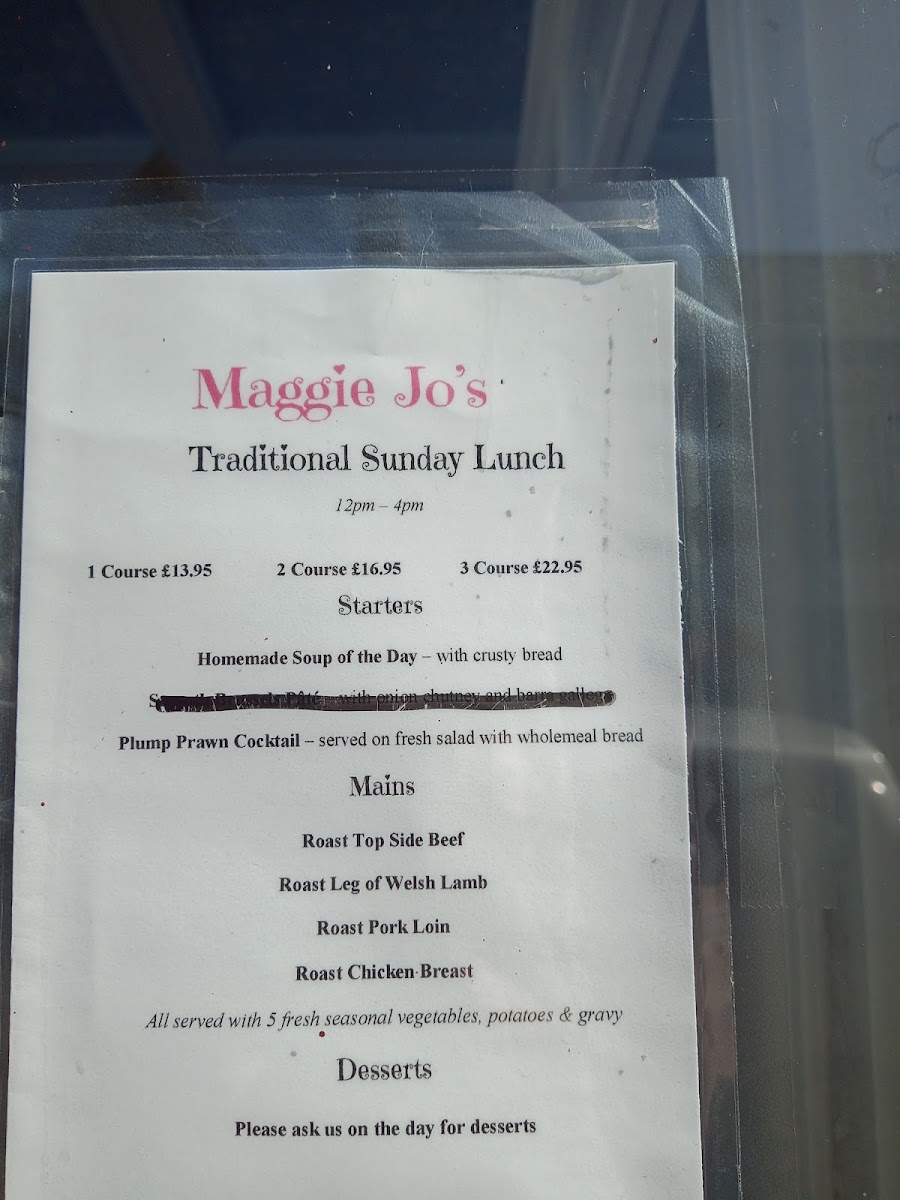 Maggie Jo's
Traditional Sunday Lunch
12pm – 4pm
1 Course £13.95 2 Course £16.95 3 Course £22.95
Starters
Homemade Soup of the Day – with crusty bread
Brussels Pâté – with onion chutney and barra gallega
Plump Prawn Cocktail – served on fresh salad with wholemeal bread
Mains
Roast Top Side Beef
Roast Leg of Welsh Lamb
Roast Pork Loin
Roast Chicken Breast
All served with 5 fresh seasonal vegetables, potatoes & gravy
Desserts
Please ask us on the day for desserts